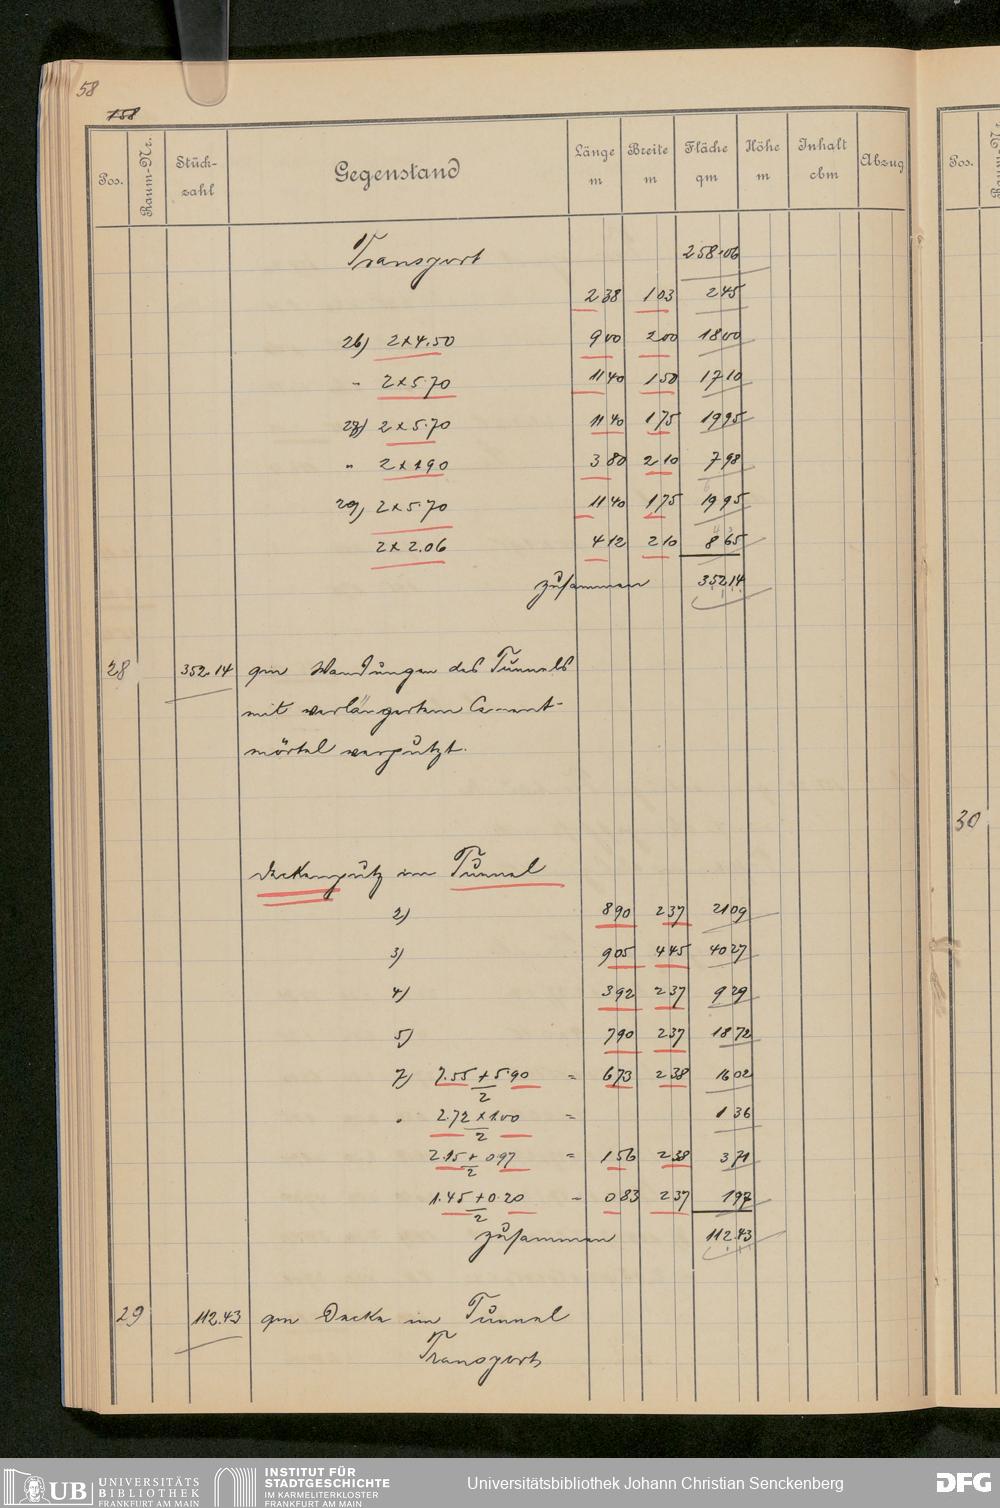 58
158
Pos. Raum-Nr. Stück-zahl Gegenstand Länge m Breite m Fläche qm Höhe m Inhalt cbm Abzug Pos.
Transport 258.06
2 38 1 03 2 45
26) 2 x 4.50 9 00 2 00 18 00
" 2 x 5.70 11 40 1 50 17 10
28) 2 x 5.70 11 40 1 75 19 95
" 2 x 1.90 3 80 2 10 7 98
29) 2 x 5.70 11 40 1 75 19 95
2 x 2.06 4 12 2 10 8 65
zusammen 352 14
28 352.14 qm Wandungen des Tunnels
mit verlängertem Cement-
mörtel verputzt.
30
Deckenputz im Tunnel
2) 8 90 2 37 21 09
3) 9 05 4 45 40 27
4) 3 92 2 37 9 29
5) 7 90 2 37 18 72
7) 7.55 + 5.90 / 2 = 6 73 2 38 16 02
" 2.72 x 1.00 / 2 = 1 36
2.15 + 0.97 / 2 = 1 56 2 38 3 71
1.45 + 0.20 / 2 = 0 83 2 37 1 97
zusammen 112.43
29 112.43 qm Decke im Tunnel
Transport
UB UNIVERSITÄTS
BIBLIOTHEK
FRANKFURT AM MAIN
INSTITUT FÜR
STADTGESCHICHTE
IM KARMELITERKLOSTER
FRANKFURT AM MAIN
Universitätsbibliothek Johann Christian Senckenberg
DFG